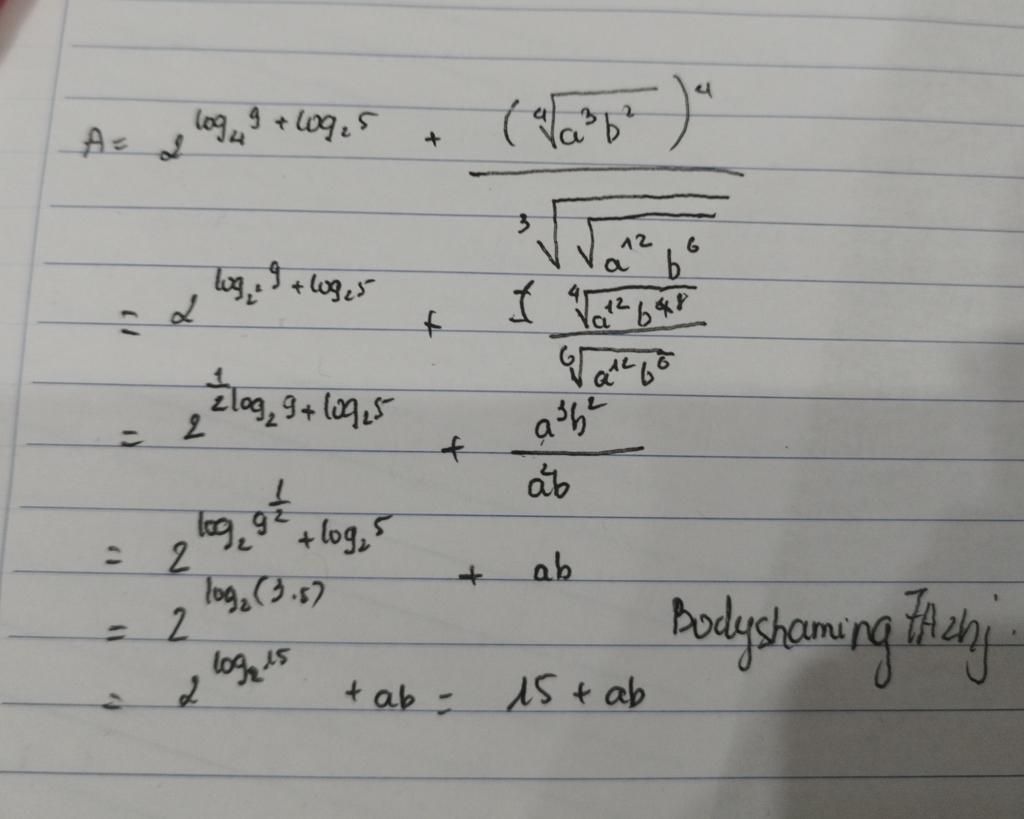 A = 2^{log_4 9 + log_2 5} + \frac{(\sqrt[4]{a^3 b^2})^4}{\sqrt[3]{\sqrt{a^{12} b^6}}}
= 2^{log_{2^2} 9 + log_2 5} + \frac{\sqrt[4]{a^{12} b^8}}{\sqrt[6]{a^{12} b^6}}
= 2^{\frac{1}{2} log_2 9 + log_2 5} + \frac{a^3 b^2}{a^2 b}
= 2^{log_2 9^{\frac{1}{2}} + log_2 5} + ab
= 2^{log_2 (3.5)}
Bodyshaming
= 2^{log_2 15} + ab = 15 + ab